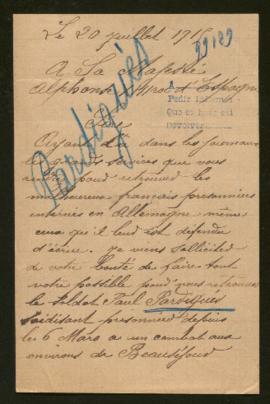 Le 20 juillet 1916
99189
A Sa Majesté
Alphonse Roi d'Espagne
Pardigues
Pedir informe
Sire
Ayant lu dans les journaux
les services que vous
pour retrouver les
malheureux français prisonniers
internés en Allemagne même
ceux qui il leur est défendu
d'écrire. Je viens solliciter
de votre bonté de faire tout
votre possible pour nous retrouver
le soldat Paul Pardigues
soidisant prisonnier depuis
le 6 Mars a un combat aux
environs de Beausejour